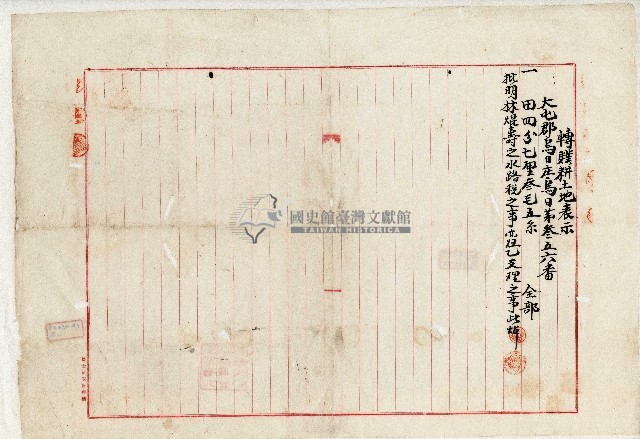 轉贌耕土地表示
大屯郡烏日庄烏日第叁五六番
一 田四分七厘叁毛五糸 全部
批明林焜壽之水路稅之事 乙支理之事此批
國史館臺灣文獻館
TAIWAN HISTORICA